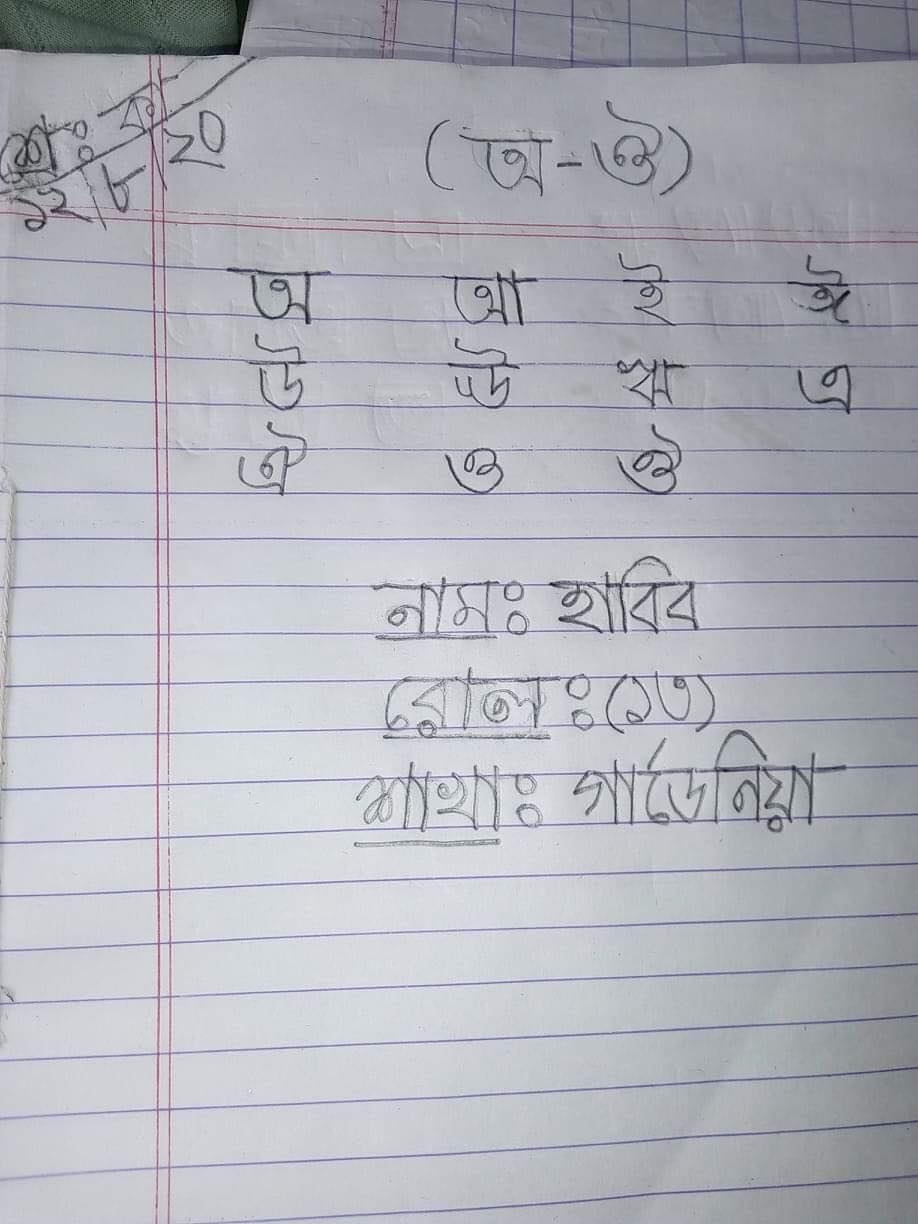 শ্রে: ক
১২/৮/২০
(অ-ঔ)
অ আ ই ঈ
উ ঊ ঋ এ
ঐ ও ঔ
নামঃ হাবিব
রোলঃ (১৩)
শাখাঃ গার্ডেনিয়া